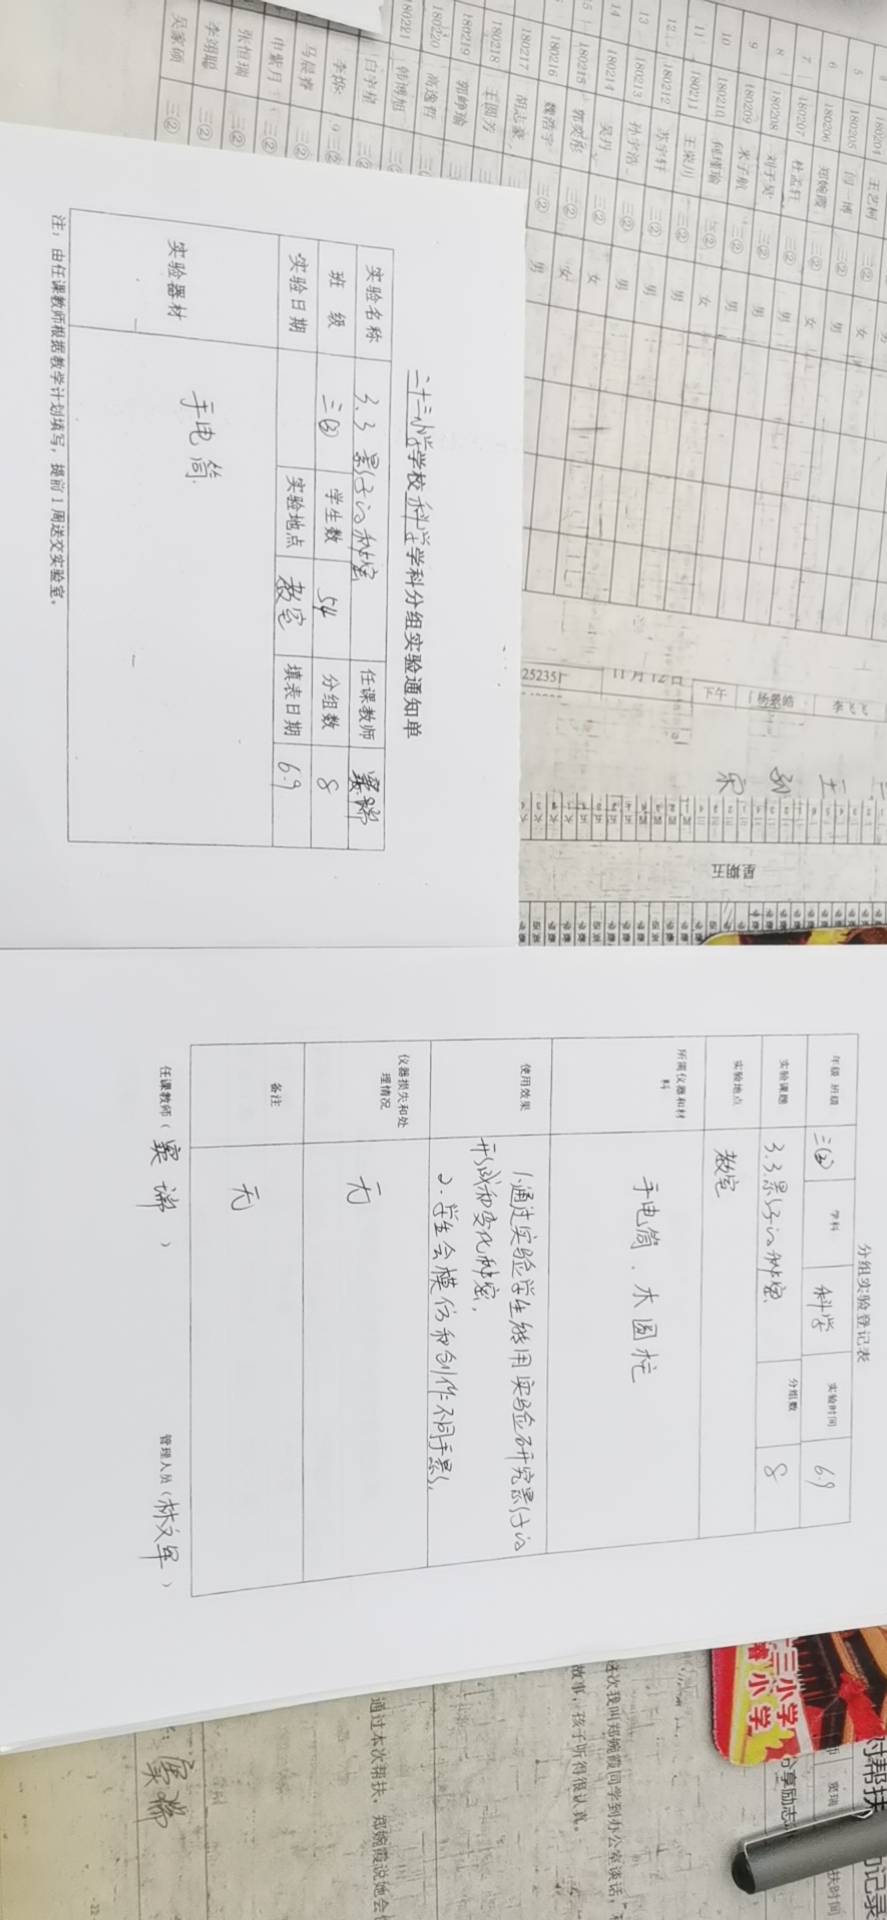 二十三小学学校科学学科分组实验通知单
实验名称 3.3 影子的秘密 任课教师 窦瑞
班 级 三② 学生数 54 分组数 8
实验日期 实验地点 教室 填表日期 6.9
实验器材 手电筒
注：由任课教师根据教学计划填写，提前1周送交实验室。
分组实验登记表
年级 班级 三② 学科 科学 实验时间 6.9
实验课题 3.3.影子的秘密 分组数 8
实验地点 教室
所需仪器和材料 手电筒、木圆柱
使用效果 1.通过实验学生能用实验研究影子的
形成和变化秘密。
2.学生会模仿和创作不同手影。
仪器损失和处理情况 无
备注 无
任课教师（窦瑞） 管理人员（林文军）
180204 王艺柯 三②
5 180205 闫一博 三② 女
6 180206 郑婉霞 三② 男
7 180207 杜孟轩 三② 女
8 180208 刘子昊 三② 男
9 180209 米子航 三② 男
10 180210 三② 男
11 180211 王荣川 三② 女
12 180212 苏宇轩 三② 男
13 180213 孙宇浩 三② 男
14 180214 吴丹 三② 男
15 180215 郭奕彤 三② 女
180216 魏浩宇 三② 女
180217 胡志豪 男
180218 王圆芳
180219 郭峥瑜
180220 高逸哲
180221 韩博旭
白宇星 三②
李烁 三②
马晨睿 三②
申紫月 三②
张恒瑞 三②
李翊聪 三②
吴家硕 三②
25235
11月12日
下午 杨景皓 李飞飞
星期五
三小学
小学
窦瑞
这次我叫郑婉霞同学到办公室谈话，
故事，孩子听得很认真。
通过本次帮扶，郑婉霞说她会
窦瑞